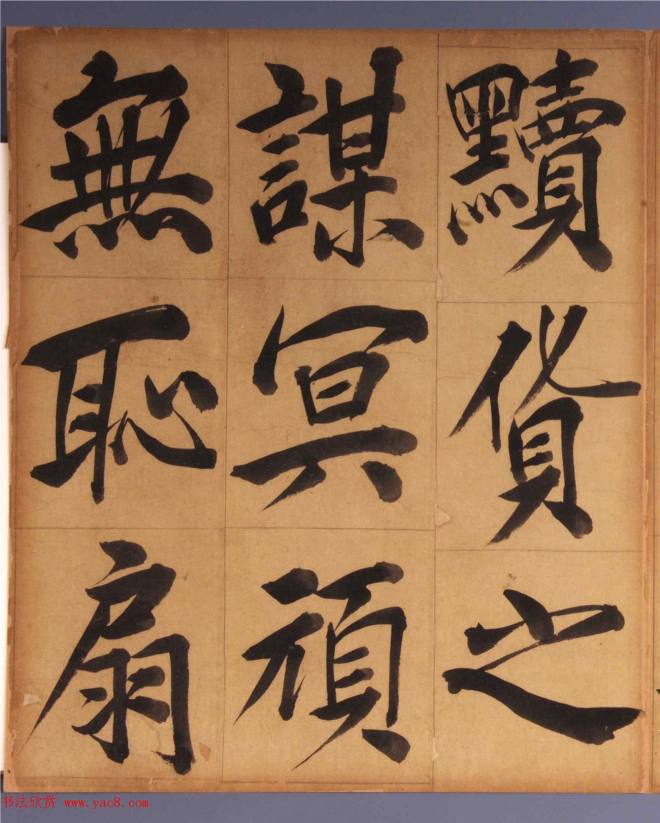 黷貨之
謀冥頑
無恥扇
书法欣赏 www.yac8.com